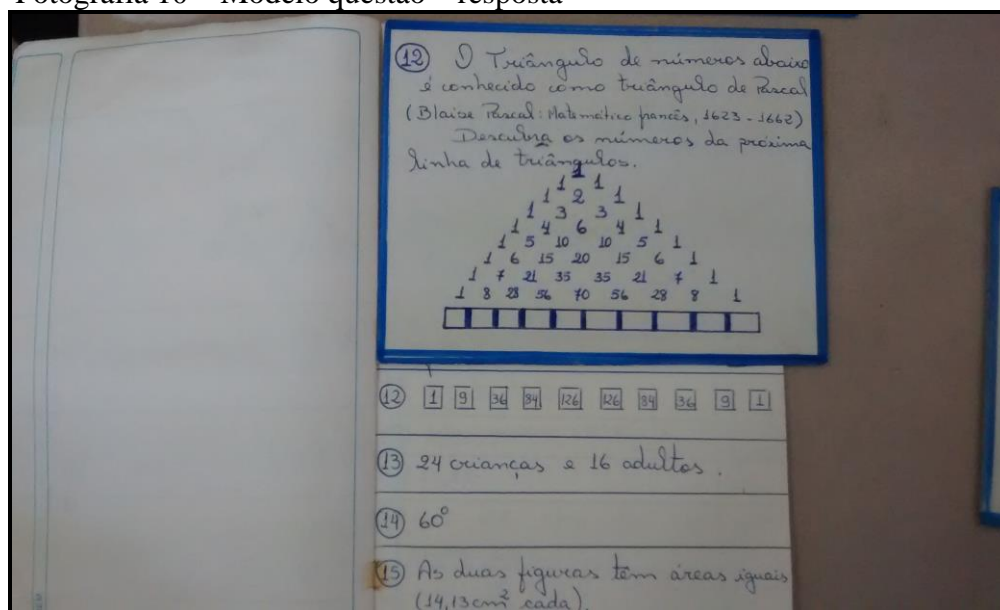 Fotografia 10 – Modelo questão – resposta
12 O Triângulo de números abaixo
é conhecido como triângulo de Pascal
(Blaise Pascal: Matemático francês, 1623 - 1662)
Descubra os números da próxima
linha de triângulos.
1
1 1
1 2 1
1 3 3 1
1 4 6 4 1
1 5 10 10 5 1
1 6 15 20 15 6 1
1 7 21 35 35 21 7 1
1 8 28 56 70 56 28 8 1
12 1 9 36 84 126 126 84 36 9 1
13 24 crianças e 16 adultos.
14 60°
15 As duas figuras têm áreas iguais
(14,13cm² cada).